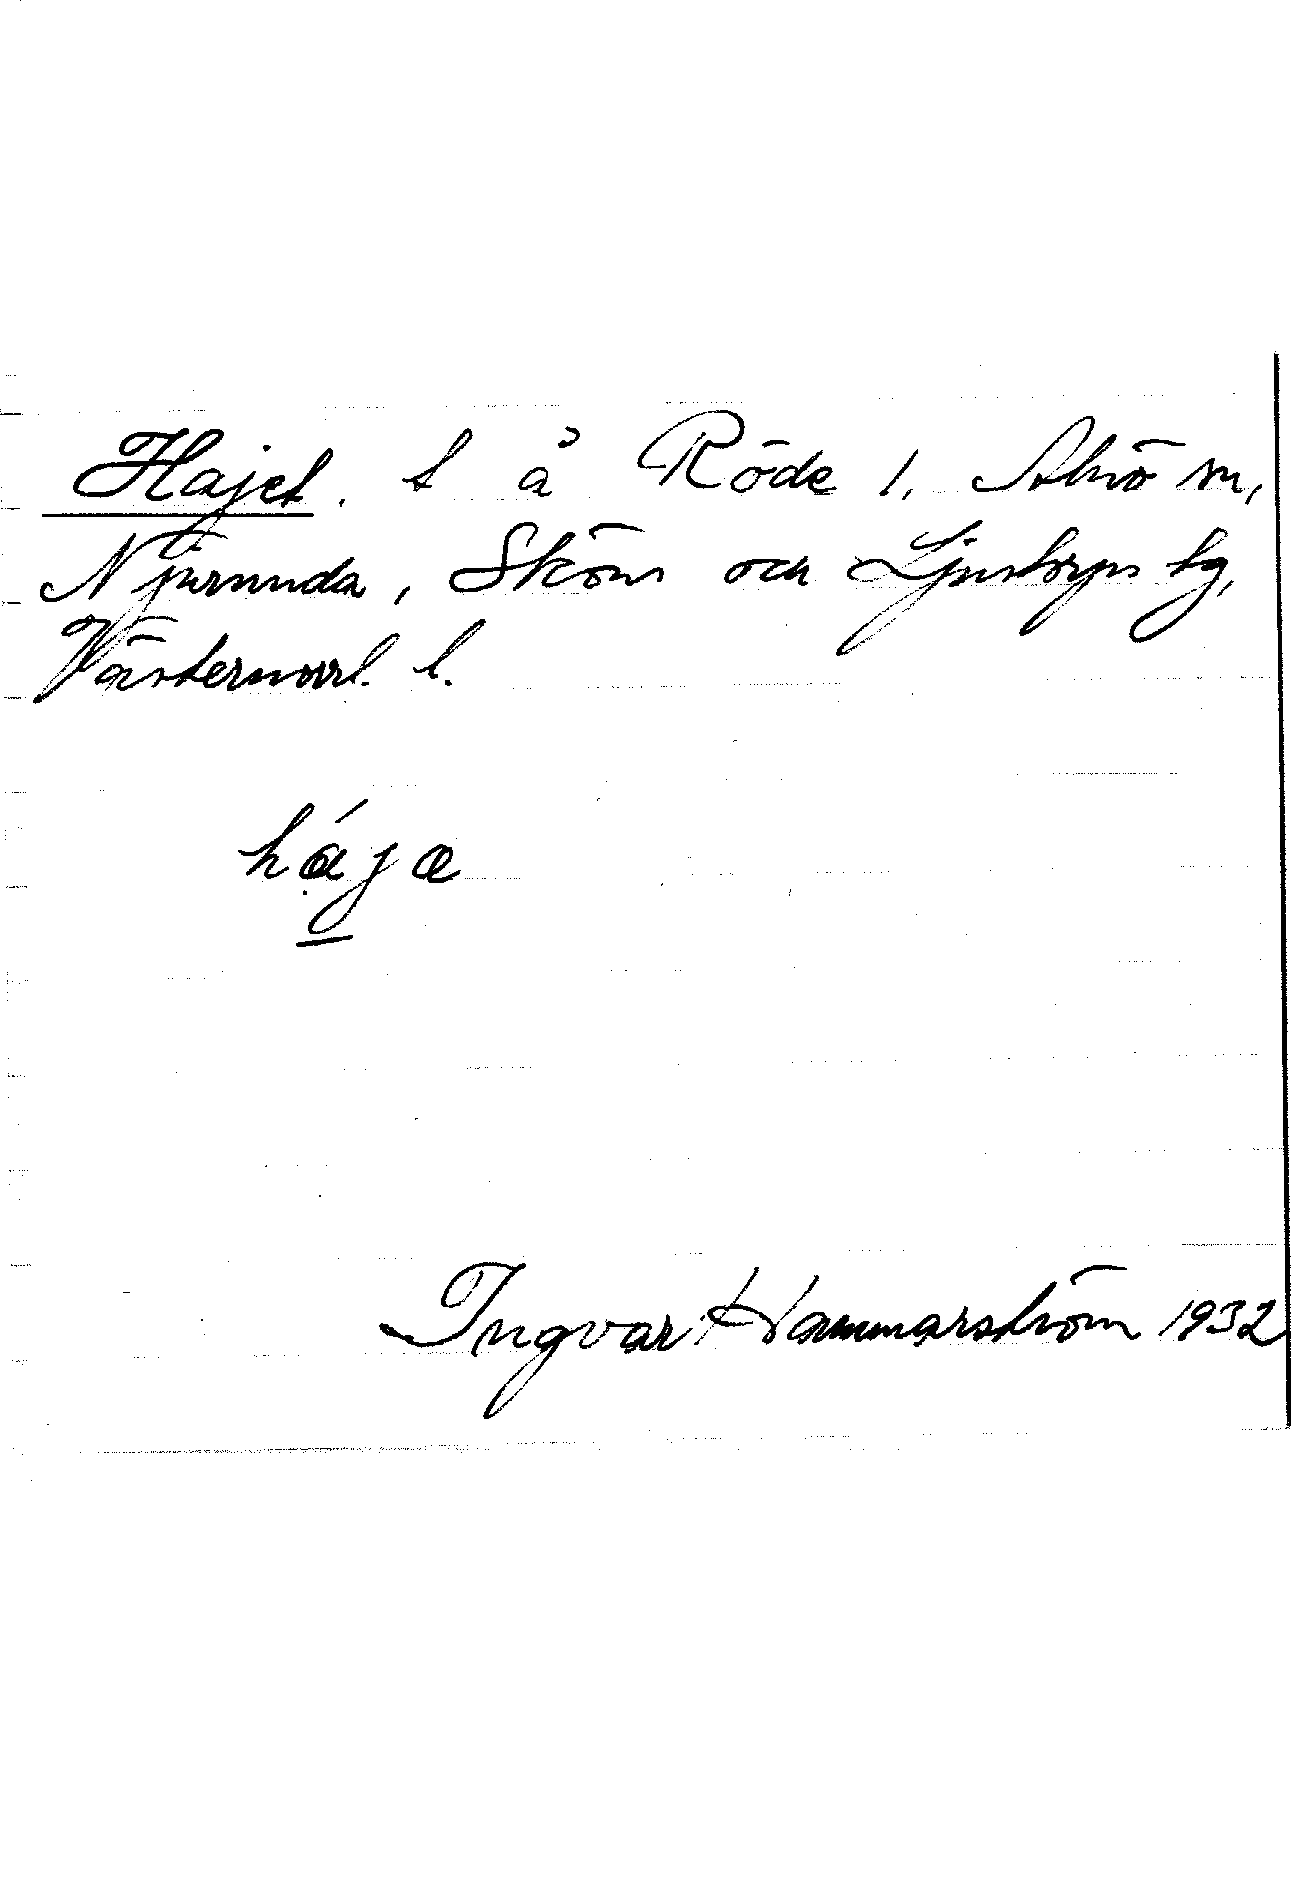 Hajet. t å Röde 1. Alnö sn,
Njurunda, Sköns och Ljustorps tg,
Västernorrl. l.
hája
Ingvar Hammarström 1932